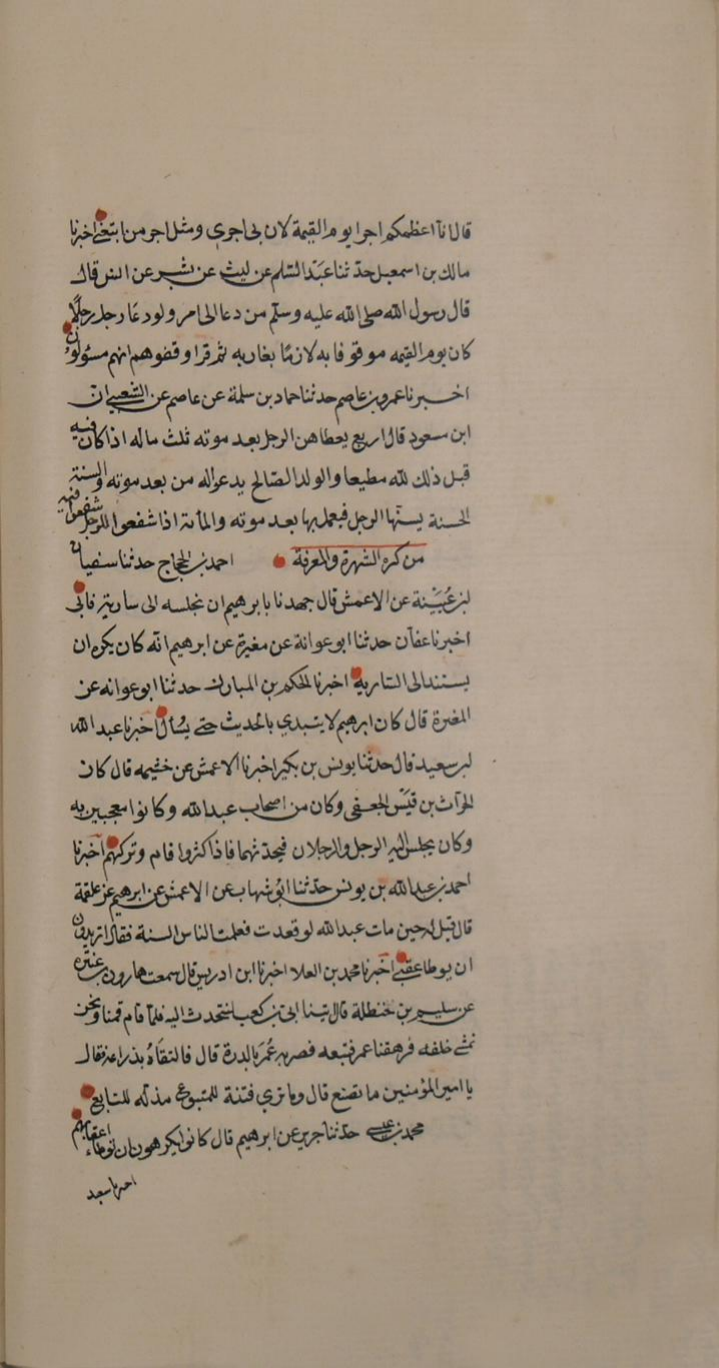 قال انا اعظمكم اجرا يوم القيمة لان لى اجرى ومثل اجر من اتبعنى اخبرنا
مالك بن اسمعيل حدثنا عبد السلم عن ليث عن بشر عن انس قال
قال رسول الله صلى الله عليه وسلم من دعا الى امر ولو دعا رجل رجلا
كان يوم القيمه موقوفا به لازما بغاربه ثم قرا وقفوهم انهم مسئولون
اخبرنا عمرو بن عاصم حدثنا حماد بن سلمة عن عاصم عن الشعبى ان
ابن مسعود قال اربع يعطاهن الرجل بعد موته ثلث ماله اذا كان فيه
قبل ذلك لله مطيعا والولد الصالح يدعو له من بعد موته والسنة
الحسنة يسنها الرجل فيعمل بها بعد موته والمائة اذا شفعوا للرجل شفعوا فيه
من كره الشهرة والمعرفة احمد بن الحجاج حدثنا سفيان
بن عيينة عن الاعمش قال جهدنا بابرهيم ان نجلسه الى سارية فابى
اخبرنا عفان حدثنا ابو عوانة عن مغيرة عن ابرهيم انه كان يكره ان
يستند الى السارية اخبرنا الحكم بن المبارك حدثنا ابو عوانه عن
المغيرة قال كان ابرهيم لا يبتدى بالحديث حتى يسأل اخبرنا عبد الله
بن سعيد قال حدثنا يونس بن بكير اخبرنا الاعمش عن خثيمه قال كان
الحرث بن قيس الجعفى وكان من اصحاب عبد الله وكانوا معجبين به
وكان يجلس اليه الرجل والرجلان فيحدثهما فاذا كثروا قام وتركهم اخبرنا
احمد بن عبد الله بن يونس حدثنا ابو شهاب عن الاعمش عن ابرهيم عن علقمة
قال قيل له حين مات عبد الله لو قعدت فعلمت الناس السنة فقال اتريدون
ان يوطا عقبى اخبرنا محمد بن العلا اخبرنا ابن ادريس قال سمعت هارون بن عنتره
عن سليم بن حنظلة قال اتينا ابى بن كعب لنتحدث اليه فلما قام قمنا ونحن
نمشى خلفه فرهقنا عمر فتبعه فضربه عمر بالدرة قال فاتقاه بذراعيه فقال
يا امير المؤمنين ما تصنع قال وما ترى فتنة للمتبوع مذلة للتابع
محمد بن عيسى حدثنا جرير عن ابرهيم قال كانوا يكرهون ان توطاء اعقابهم
اخبرنا سعيد